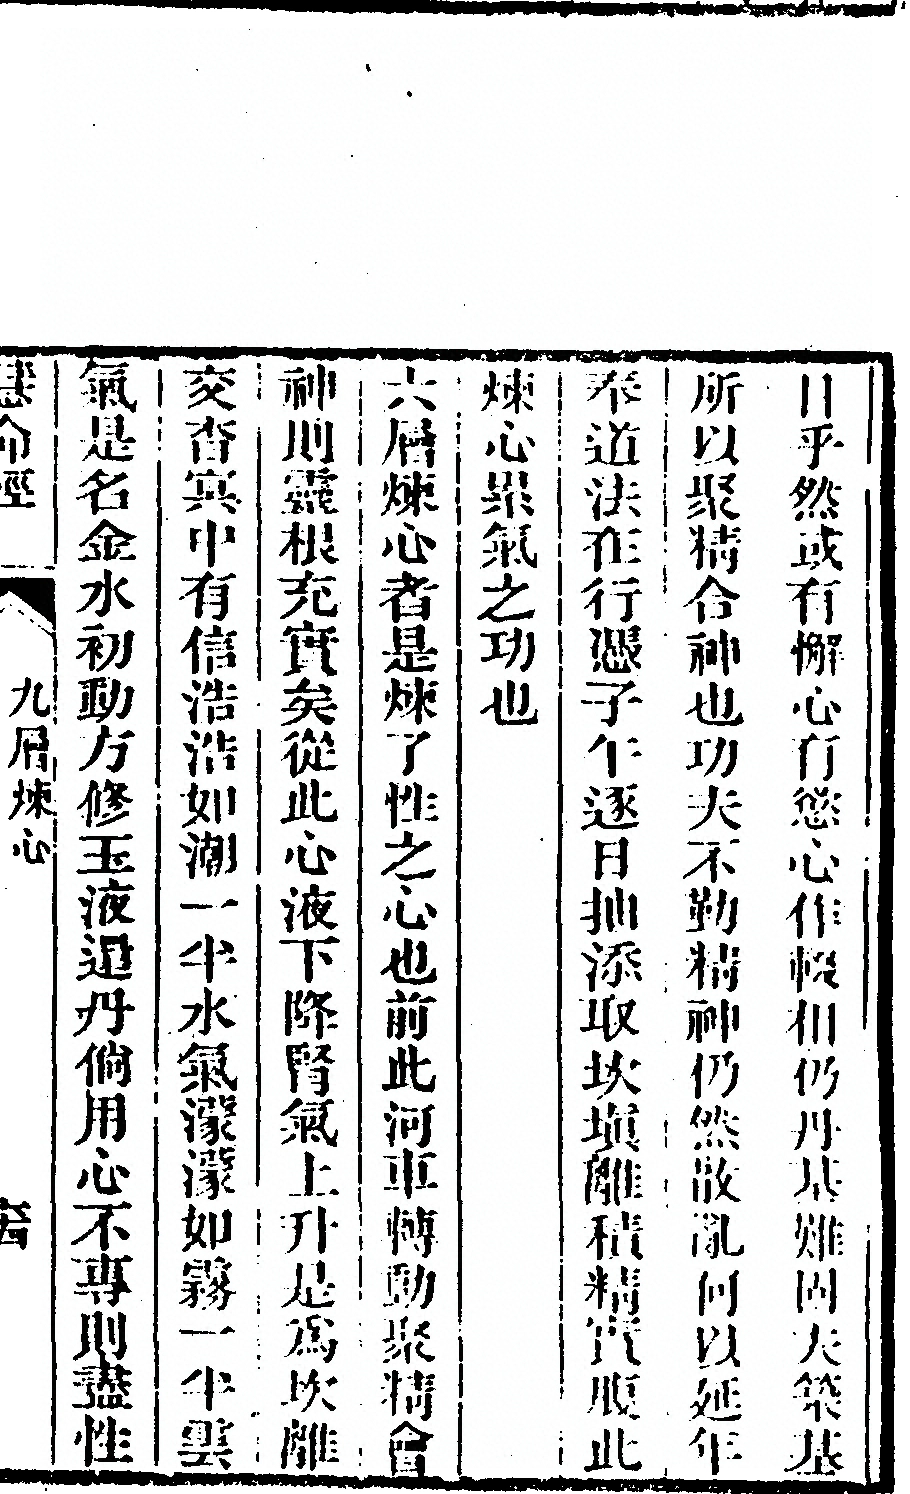 日乎然或有懈心有慾心作輟相仍丹基難固夫築基
所以聚精合神也功夫不勤精神仍然散亂何以延年
奉道法在行憑子午逐日抽添取坎塡離積精實腹此
煉心累氣之功也
六層煉心者是煉了性之心也前此河車轉動聚精會
神則靈根充實矣從此心液下降腎氣上升是爲坎離
交杳冥中有信浩浩如潮一半水氣濛濛如霧一半雲
氣是名金水初動方修玉液還丹倘用心不專則盡性
慧命經
九層煉心